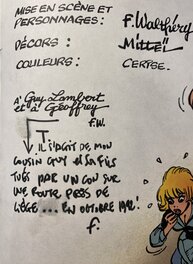 MISE EN SCÈNE ET
PERSONNAGES: F. Walthéry
DÉCORS: Mittëï
COULEURS: CERISE.
A' Guy Lambert
et à Geoffrey
F.W.
IL S'AGIT DE MON
COUSIN GUY ET SA FILS
TUÉS PAR UN CON SUR
UNE ROUTE PRÈS DE
LIÈGE ... EN OCTOBRE 1982!
F.